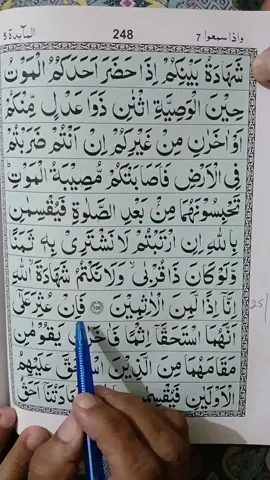 المآىدة ٥ 248 واذا سمعوا 7
شَهَادَةُ بَيْنِكُمْ اِذَا حَضَرَ اَحَدَكُمُ الْمَوْتُ
حِيْنَ الْوَصِيَّةِ اثْنٰنِ ذَوَا عَدْلٍ مِّنْكُمْ
اَوْ اٰخَرٰنِ مِنْ غَيْرِكُمْ اِنْ اَنْتُمْ ضَرَبْتُمْ
فِى الْاَرْضِ فَاَصَابَتْكُمْ مُّصِيْبَةُ الْمَوْتِ
تَحْبِسُوْنَهُمَا مِنْۢ بَعْدِ الصَّلٰوةِ فَيُقْسِمٰنِ
بِاللّٰهِ اِنِ ارْتَبْتُمْ لَا نَشْتَرِىْ بِهٖ ثَمَنًا
وَّلَوْ كَانَ ذَا قُرْبٰى وَلَا نَكْتُمُ شَهَادَةَ اللّٰهِ
اِنَّاۤ اِذًا لَّمِنَ الْاٰثِمِيْنَ فَاِنْ عُثِرَ عَلٰٓى
اَنَّهُمَا اسْتَحَقَّاۤ اِثْمًا يَقُوْمٰنِ
مَقَامَهُمَا مِنَ الَّذِيْنَ عَلَيْهِمُ
الْاَوْلَيٰنِ فَيُقْسِمٰنِ اَحَقُّ